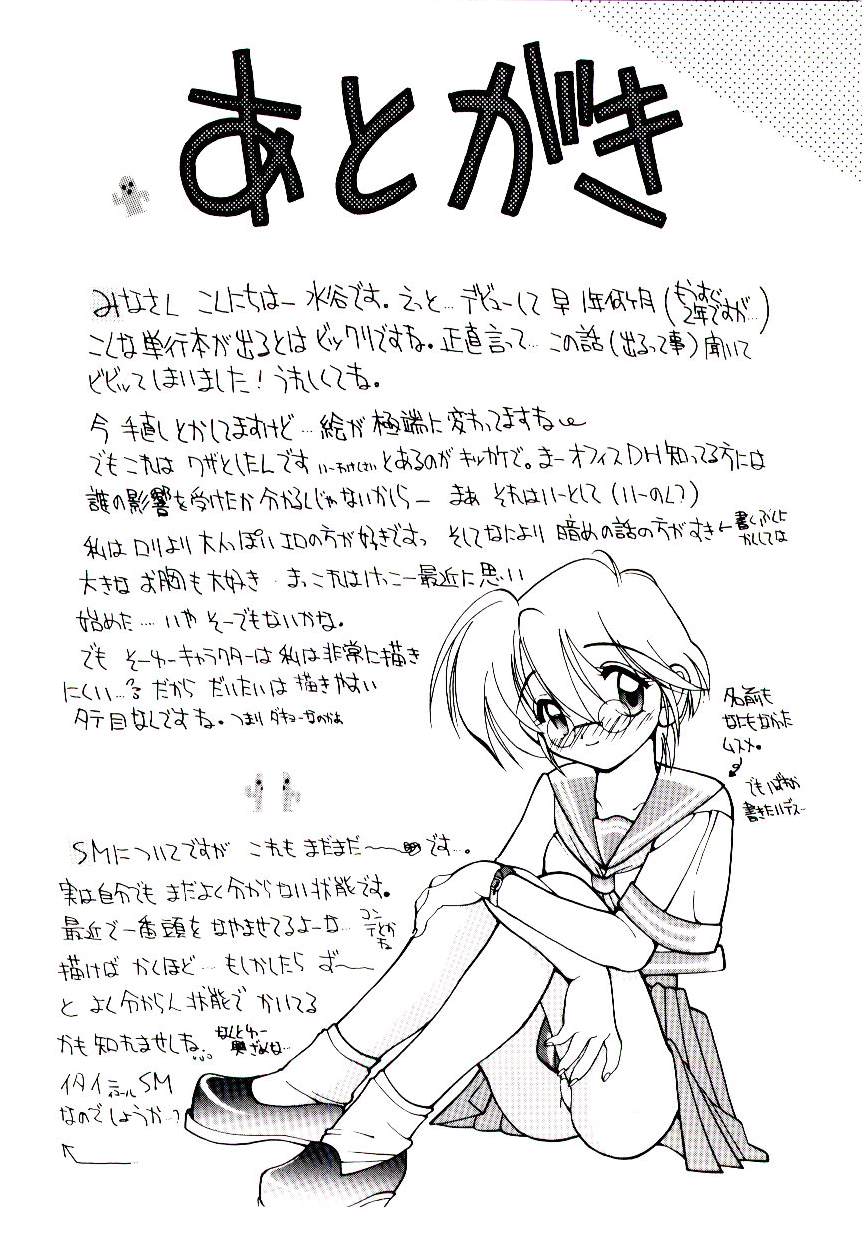 あとがき
みなさん こんにちはー 水谷です。えっと… デビューして 早 1年何ヶ月(もうすぐ2年ですが…)
こんな単行本が出るとは ビックリですね。正直言って… この話(出るって事)聞いて
ビビッてしまいました!うれしくてね。
今 手直しとかしてますけど… 絵が極端に変わってますね
でもこれは ワザとしたんです とあるのがキッカケで。まーオフィスDH知ってる方には
誰の影響を受けたか分かるんじゃないかしらー まぁ それはいーとして(いーのん?)
私はロリより 大人っぽいエロの方が好きですっ そしてなにより 暗めの話の方がすき←
大きな お胸も大好き まっこれはけっこー最近に思い
始めた… いや そーでもないかな。
でも そーゆーキャラクターは 私は非常に描き
にくい…? だから だいたいは 描きやすい
タテ目なんですね。つまり
名前も
なにもなかった
ムスメ。
でも いずれか
書きたいデスー
SMについてですが これも まだまだ〜 です…。
実は自分でも まだよく分からない状態です。
最近で一番頭を なやませてるよーな… コンテとかね
描けば かくほど… もしかしたら ず〜
と よく分からん状態で かいてる
かも知れませんね。
イタイ=SM
なのでしょうか…?